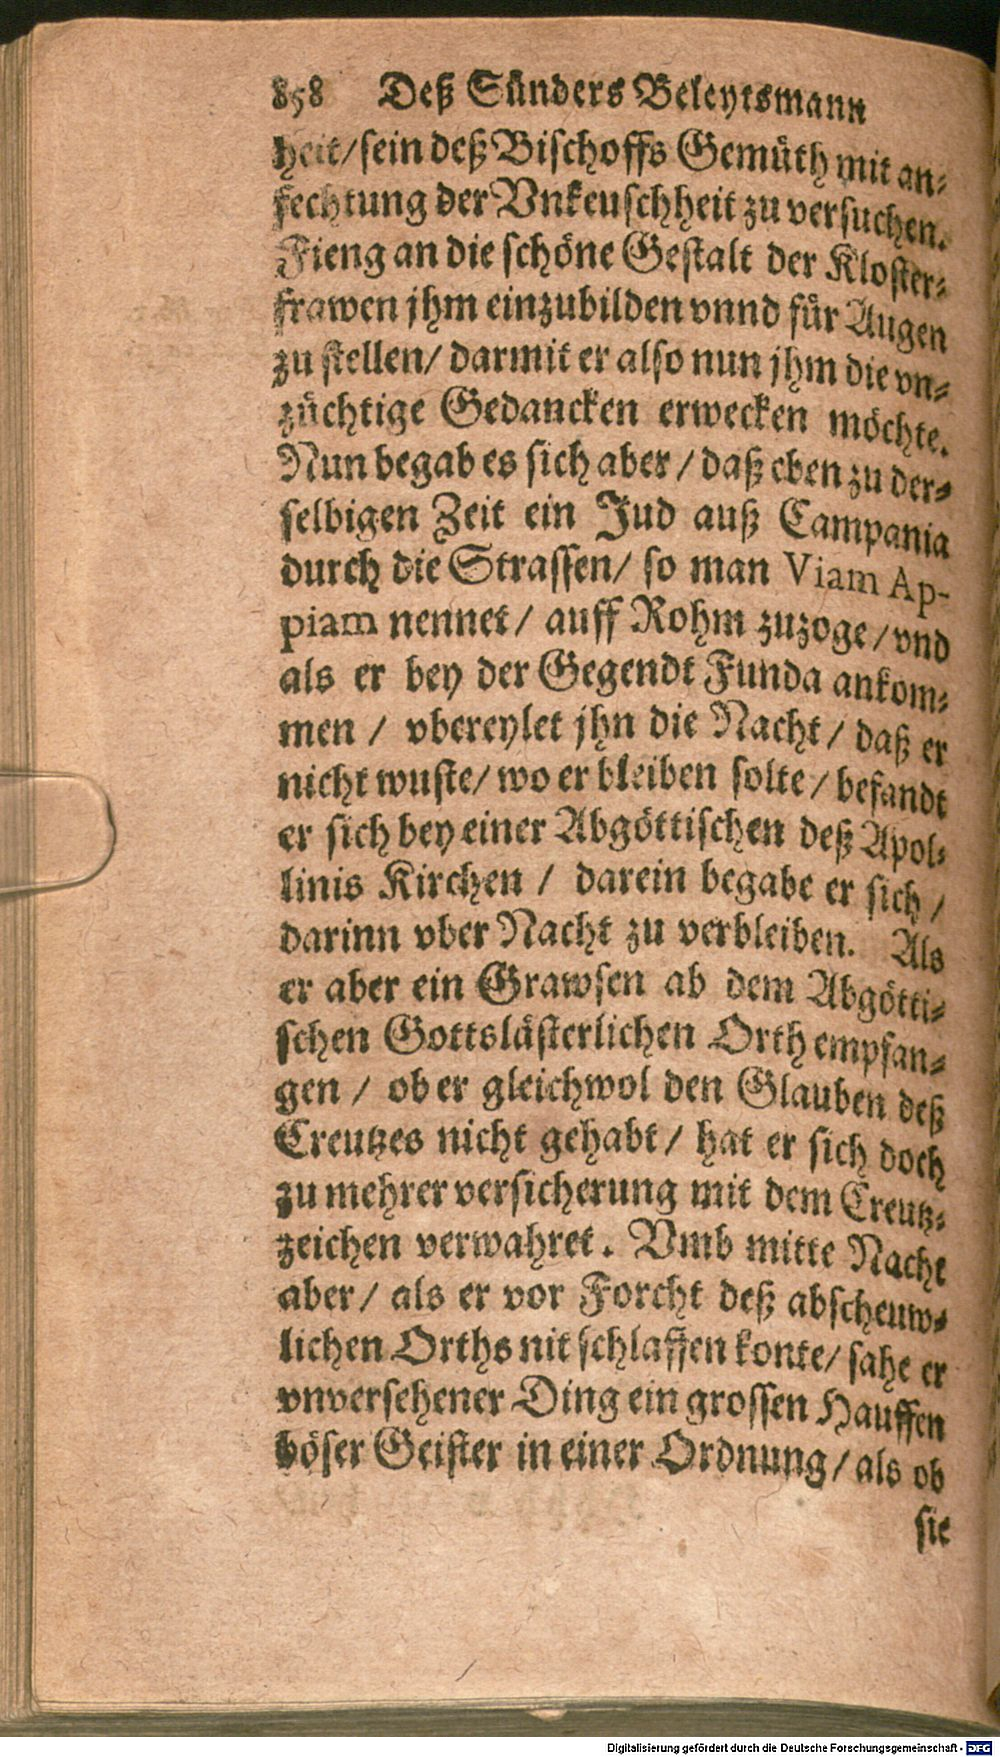 858 Deß Sünders Beleytsmann
heit/ sein deß Bischoffs Gemüth mit an-
fechtung der Vnkeuschheit zu versuchen.
Fieng an die schöne Gestalt der Kloster-
frawen jhm einzubilden vnnd für Augen
zu stellen/ darmit er also nun jhm die vn-
züchtige Gedancken erwecken möchte.
Nun begab es sich aber / daß eben zu der-
selbigen Zeit ein Jud auß Campania
durch die Strassen/ so man Viam Ap-
piam nennet / auff Rohm zuzoge / vnd
als er bey der Gegendt Funda ankom-
men / vbereylet jhn die Nacht / daß er
nicht wuste/ wo er bleiben solte / befandt
er sich bey einer Abgöttischen deß Apol-
linis Kirchen / darein begabe er sich /
darinn vber Nacht zu verbleiben. Als
er aber ein Grawsen ab dem Abgötti-
schen Gottslästerlichen Orth empfan-
gen / ob er gleichwol den Glauben deß
Creutzes nicht gehabt / hat er sich doch
zu mehrer versicherung mit dem Creutz-
zeichen verwahret. Vmb mitte Nacht
aber / als er vor Forcht deß abscheuw-
lichen Orths nit schlaffen konte/ sahe er
vnversehener Ding ein grossen Hauffen
böser Geister in einer Ordnung / als ob
sie
Digitalisierung gefördert durch die Deutsche Forschungsgemeinschaft - DFG